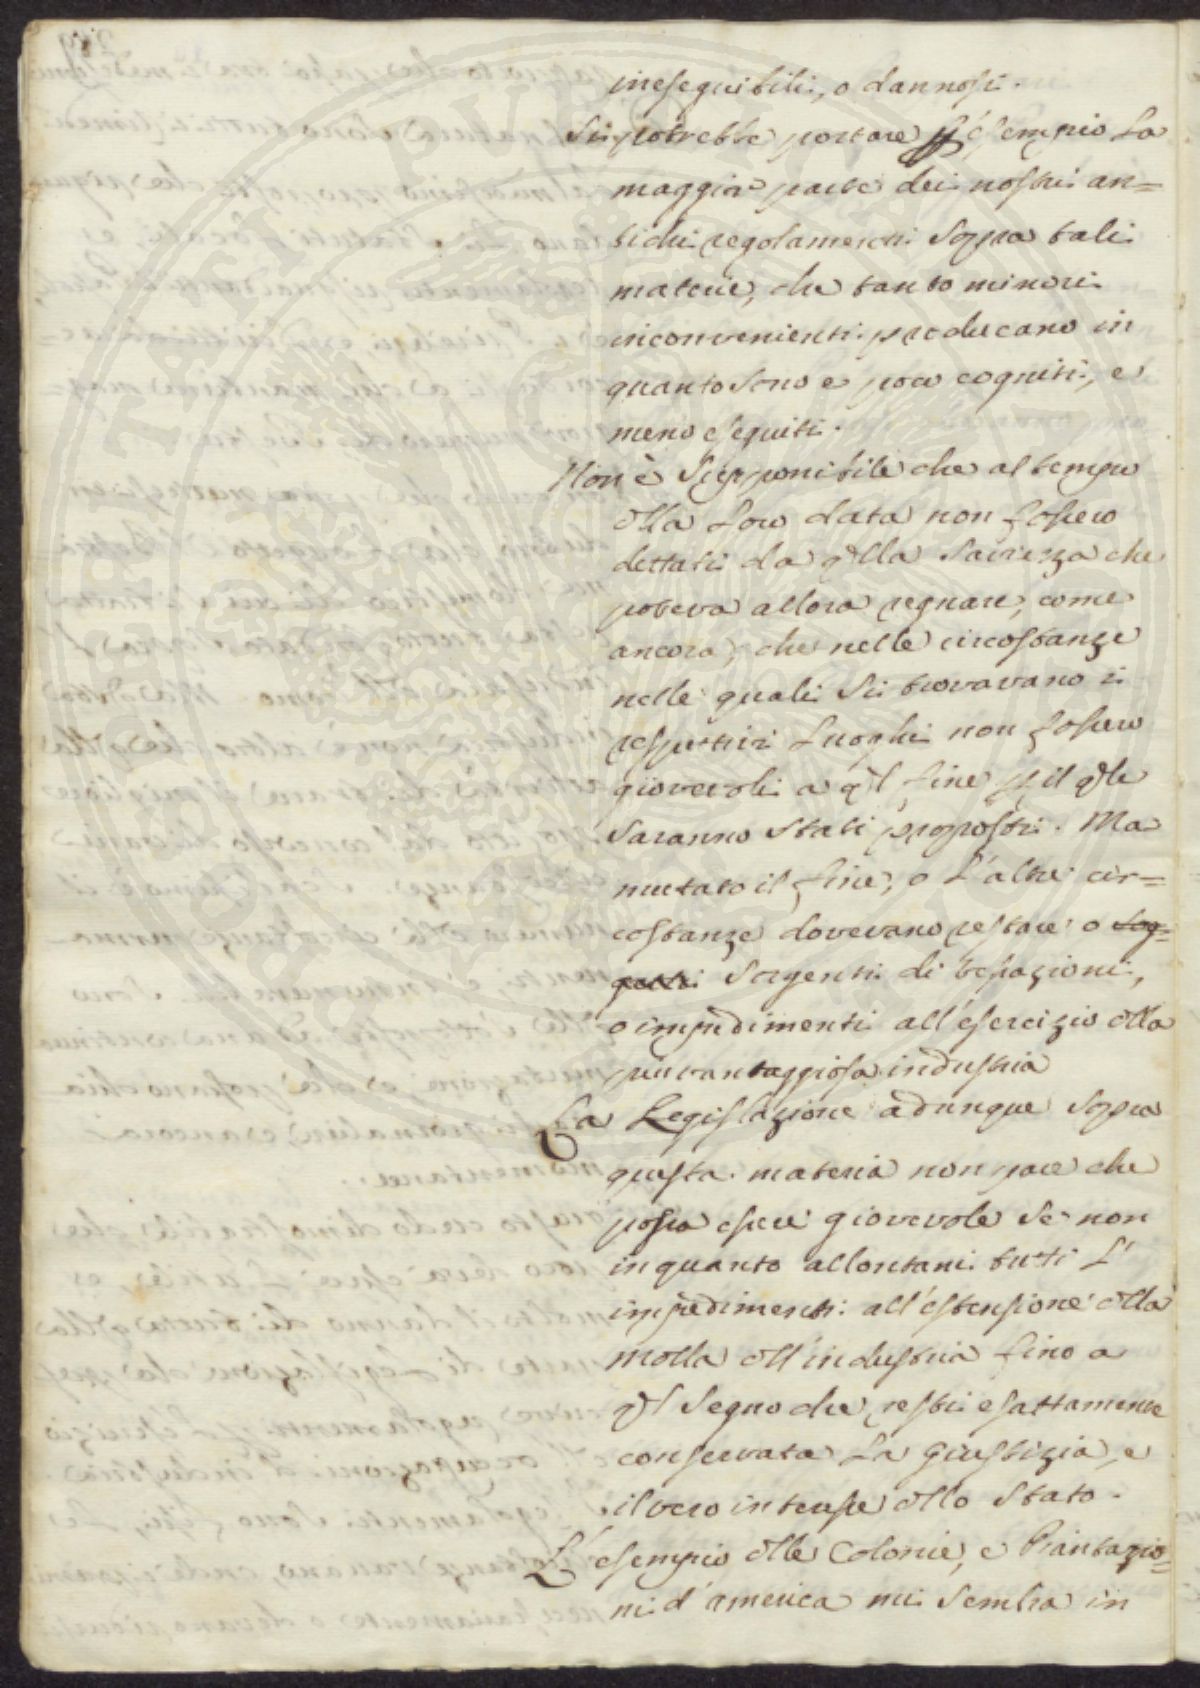 inesequibili, o dannosi.
Si potrebbe portare p esempio La
maggior parte dei nostri an=
tichi regolamenti sopra tali
materie, che tanto minori
inconvenienti producano in
quanto sono e poco cogniti, e
meno eseguiti.
Non è supponibile che al tempo
dlla Loro data non fossero
dettati da qlla saviezza che
poteva allora regnare, come
ancora, che nelle circostanze
nelle quali si trovavano i
respettivi Luoghi non fossero
giovevoli a ql fine p il qle
saranno stati proposti. Ma
mutato il fine, o L'altre cir=
costanze dovevano restare o sog=
getti sorgenti di vessazioni,
o impedimenti all'esercizio dlla
più vantaggiosa industria
La Legislazione adunque sopra
questa materia non pare che
possa essere giovevole se non
in quanto allontani tutti L'
impedimenti all'estensione dlla
molla dll'industria fino a
ql segno che resti esattamente
conservata La Giustizia, e
il vero interesse dllo Stato.
L'esempio dlle Colonie, e Piantazio=
ni d'america mi sembra in